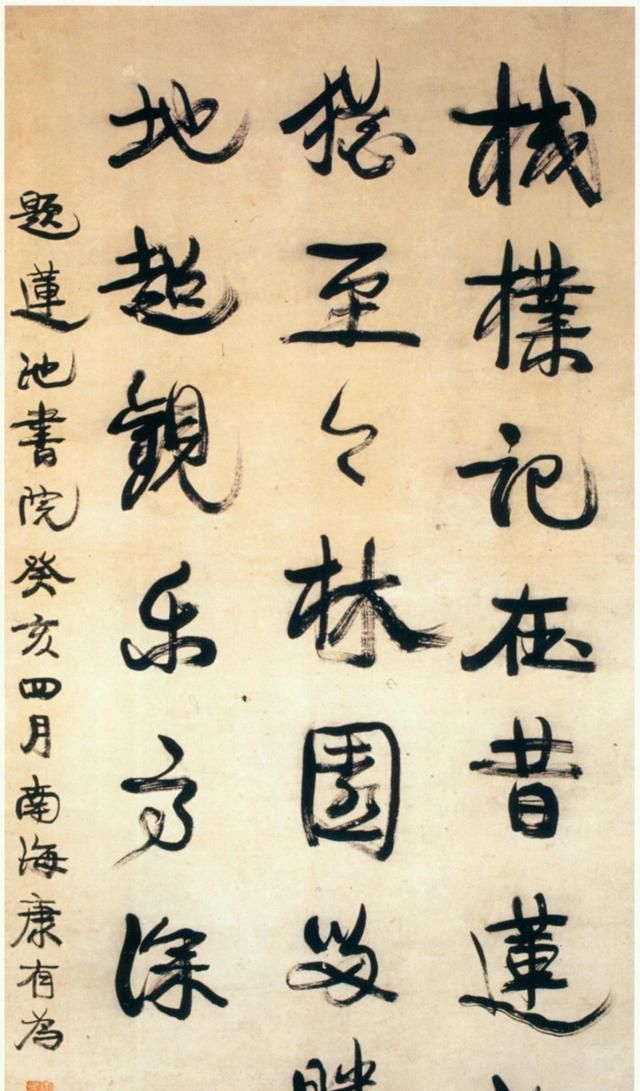 棫樸記在昔蓮
猶至今林園留勝
地超觀樂高深
題蓮池書院癸亥四月南海康有為